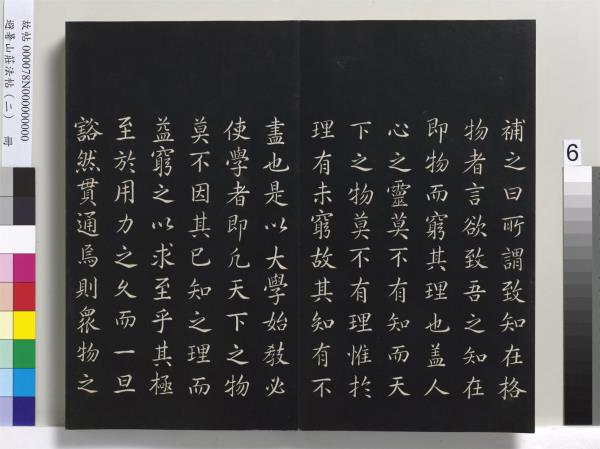 補之曰所謂致知在格
物者言欲致吾之知在
即物而窮其理也盖人
心之靈莫不有知而天
下之物莫不有理惟扵
理有未窮故其知有不
盡也是以大學始敎必
使學者即凢天下之物
莫不因其已知之理而
益窮之以求至乎其極
至於用力之久而一旦
豁然貫通焉則衆物之
故帖 000078N000000000
避暑山莊法帖(二) 冊
6